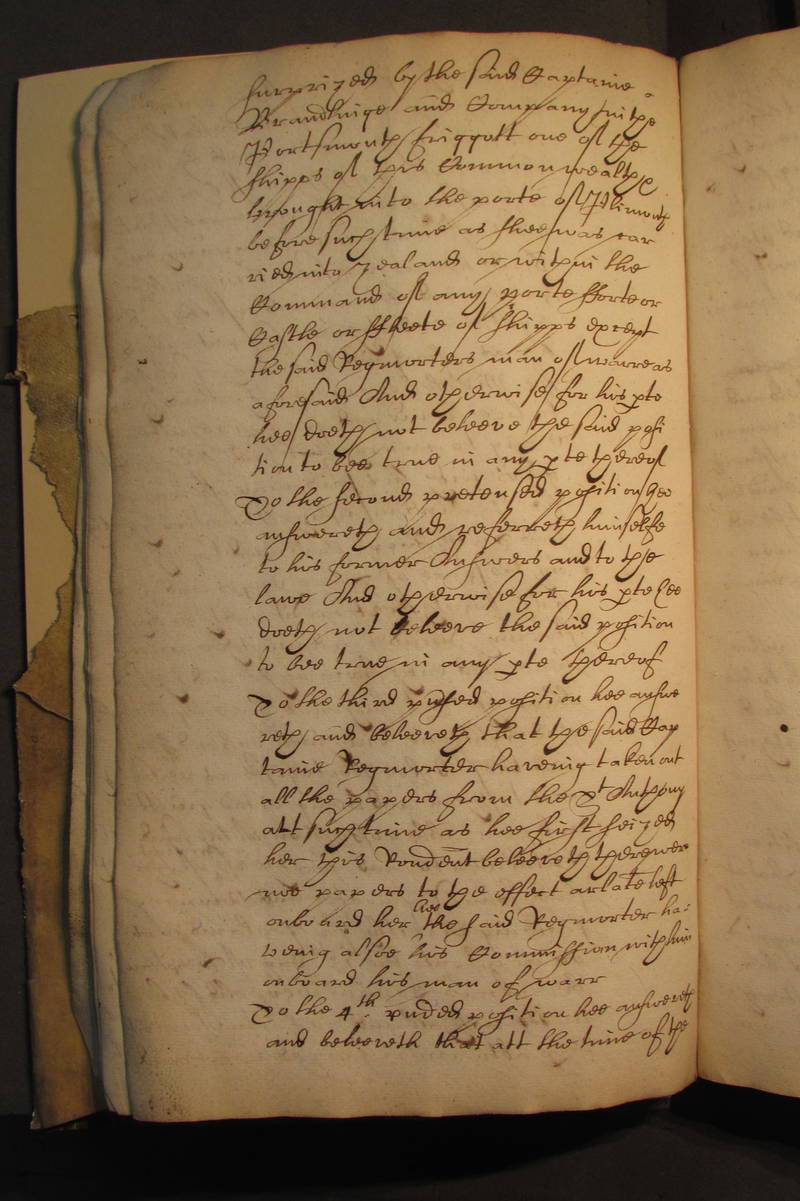 surprized by the said Captaine
Brandlinge and Company in the
Portsmouth friggott one of the
shipps of this Common wealth
brought into the porte of Plimouth
before such time as shee was car
ried into Zealand or within the
Command of any porte fforte or
Castle or ffleete of shipps except
the said Regmorters man of warre as
aforesaid And otherwise for his pte
hee doeth not beleeve the said posi
tion to bee true in any pte thereof
To the second pretensed position hee
answereth and referreth himselfe
to his former Answers and to the
lawe And otherwise for his pte hee
doeth not beleeve the said position
to bee true in any pte thereof
To the third ptnsed position hee answe
reth and beleeveth that the said Cap
taine Regmorter haveing taken out
all the papers from the St Anthony
att such time as hee first seized
her this Rondent beleeveth there were
noe papers to the effect arlate left
onboard her hee the said Regmorter ha:
veing alsoe his Commission with him
onboard his man of warr
To the 4th. ptnded position hee answereth
and beleeveth that att the time of the